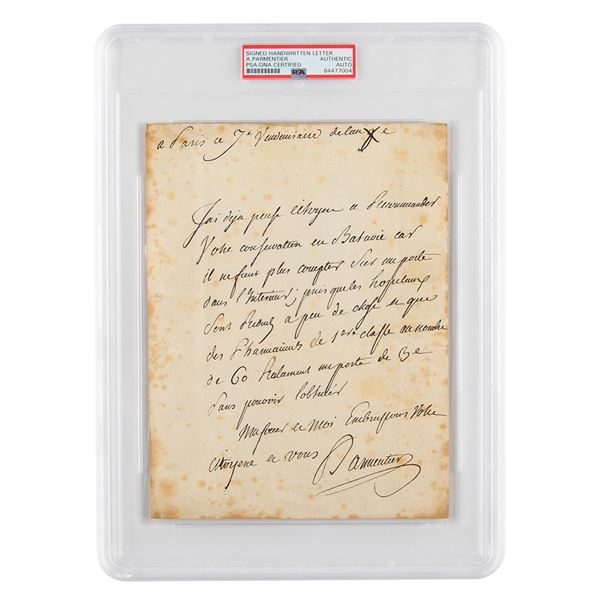 SIGNED HANDWRITTEN LETTER
A.PARMENTIER AUTHENTIC
PSA/DNA CERTIFIED PSA AUTO
84477004
a Paris ce 7e Vendemiaire de lan Xe
Jai deja pensé Citoyen a Recommander
Votre conservation en Batavie car
il ne faut plus compter Sur un poste
dans l'Interieur; puisque les hopitaux
Sont Reduits a peu de chose et que
des Pharmaciens de 1ere classe au nombre
de 60 Reclament un poste de 3e
Sans pouvoir lobtenir
Ma Soeur et Moi Embrassons Votre
Citoyene et vous Parmentier